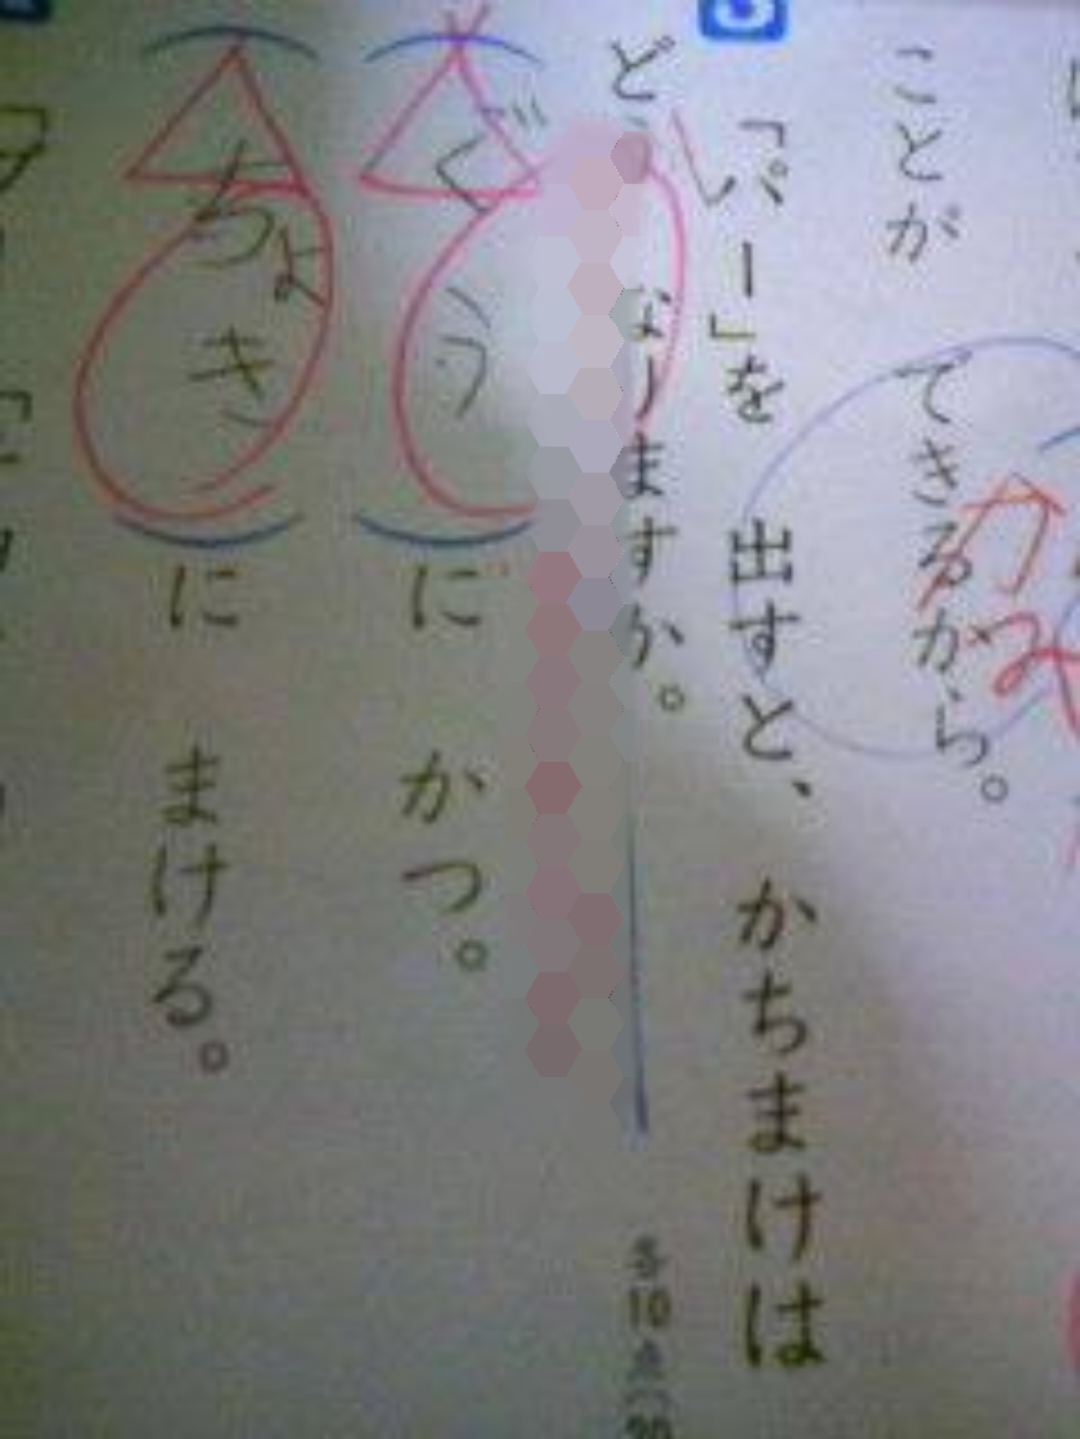 ことが できるから。
「パー」を 出すと、 かちまけは
ど なりますか。
ぐう に かつ。
ちょき に まける。